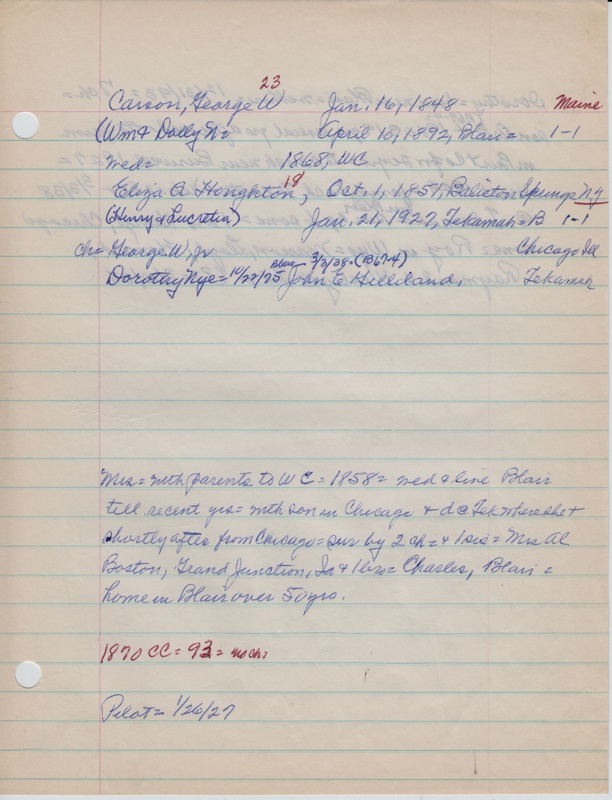 23
Carson, George W   Jan. 16, 1848   Maine
(Wm & Dolly N=   April 10, 1892, Blair=   1-1
wed=   1868, WC
Eliza A Houghton, 18   Oct. 1, 1851, Balicton Springs NY
(Henry & Lucretia)   Jan. 21, 1927, Tekamah=B   1-1
ch= George W, Jr   Chicago Ill
Blair 3/3/38=(B67-4)
Dorothy Nye= 10/22/75 John E Hilliland,   Tekamah
Mrs= with parents to WC= 1858= wed & live Blair
till recent yrs= with son in Chicago & d@Tek where she +
shortly after from Chicago= sur by 2 ch= & 1 sis= Mrs Al
Boston, Grand Junction, Ia & 1 bro= Charles, Blair=
home in Blair over 50 yrs.
1870 CC= 93= no ch=
Pilot= 1/26/27